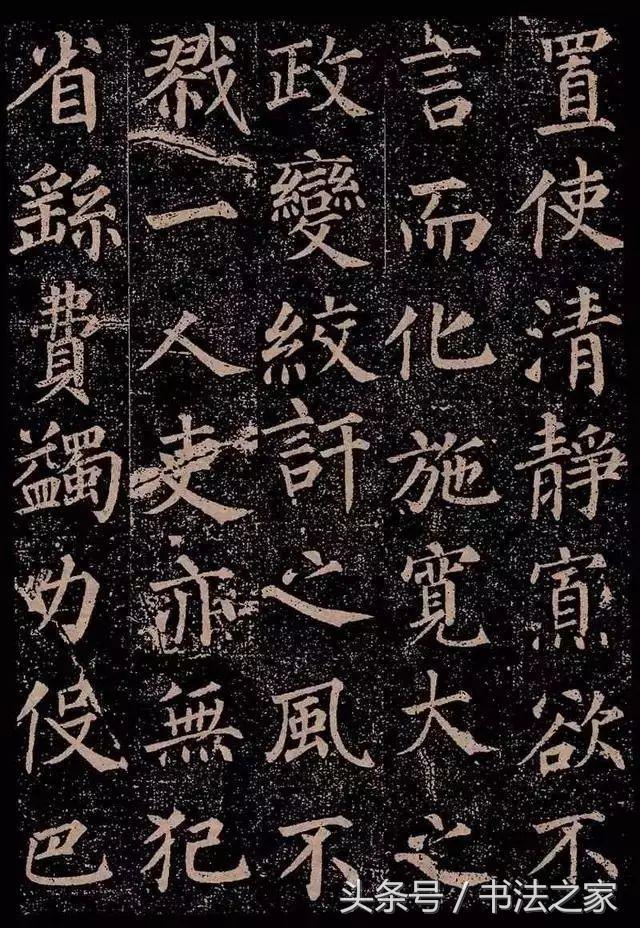 置使清靜寡欲不
言而化施寬大之
政變絞訐之風不
戮一人吏亦無犯
省繇費蠲力伇巴
头条号 / 书法之家